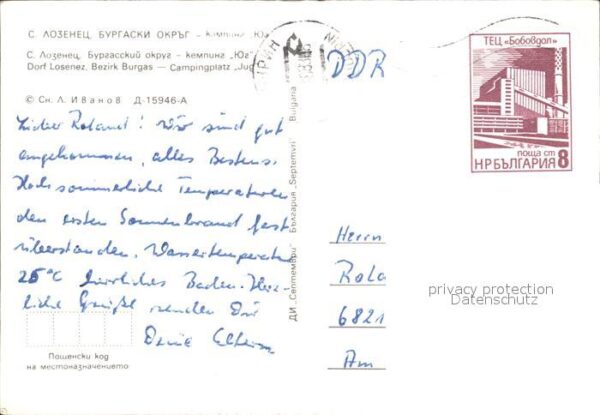 С. ЛОЗЕНЕЦ, БУРГАСКИ ОКРЪГ – кемпинг "Юг
С. Лозенец, Бургасский округ – кемпинг "Юг"
Dorf Losenez, Bezirk Burgas — Campingplatz "Jug
© Сн. Л. Иванов Д-15946-А
Lieber Roland! Wir sind gut
angekommen, alles Bestens.
Hochsommerliche Temperaturen
den ersten Sonnenbrand fast
überstanden. Wassertemperatur
25°C herrliches Baden. Herz-
liche Grüße senden Dir
Deine Eltern
Пощенски код
на местоназначението
ДИ „Септември" България „Septemvri" Bulgaria
DDR
ТЕЦ „Бобовдол"
поща ст
НР БЪЛГАРИЯ 8
Herrn
Rola
6821
Am
privacy protection
Datenschutz